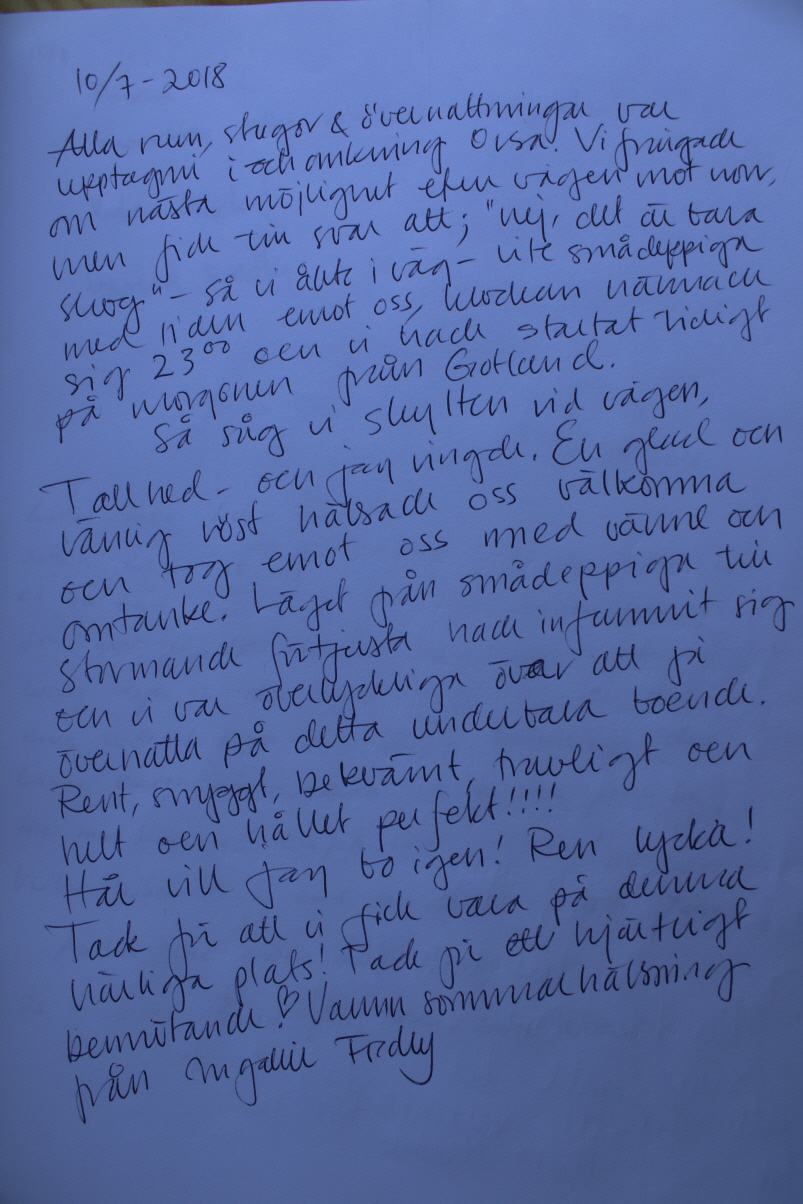 10/7-2018
Alla rum, stugor & övernattningar var
upptagna i och omkring Orsa. Vi frågade
om nästa möjlighet efter vägen mot norr,
men fick till svar att; "nej, det är bara
skog" - så vi åkte iväg - lite smådeppiga
med tiden emot oss, klockan närmade
sig 23⁰⁰ och vi hade startat tidigt
på morgonen från Gotland.
Så såg vi skylten vid vägen,
Tallhed - och jag ringde. En glad och
vänlig röst hälsade oss välkomna
och tog emot oss med värme och
omtanke. Läget från smådeppiga till
stormande förtjusta hade infunnit sig
och vi var överlyckliga över att få
övernatta på detta underbara boende.
Rent, snyggt, bekvämt, trevligt och
helt och hållet perfekt!!!!
Här vill jag bo igen! Ren lycka!
Tack för att vi fick vara på denna
härliga plats! Tack för ett hjärtligt
bemötande! ♡ Varma sommarhälsning
från